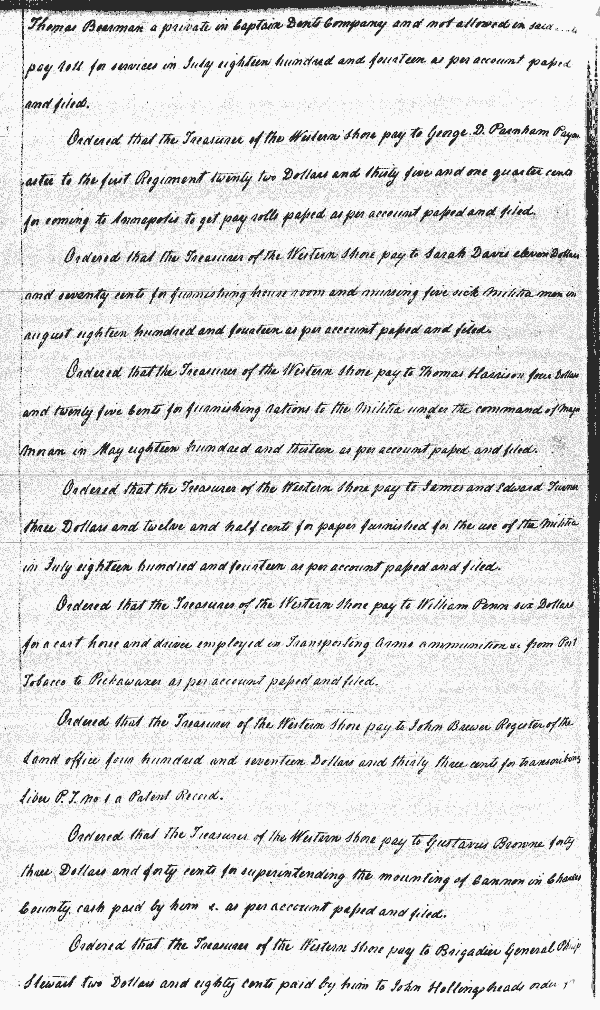 Thomas Boarman a private in Captain Dents Company and not allowed in said
pay roll for services in July eighteen hundred and fourteen as per account passed
and filed.
Ordered that the Treasurer of the Western Shore pay to George D. Parnham Paym
aster to the first Regiment twenty two Dollars and thirty five and one quarter cents
for coming to Annapolis to get pay rolls passed as per account passed and filed.
Ordered that the Treasurer of the Western Shore pay to Sarah Davis eleven Dollars
and seventy cents for furnishing house room and nursing five sick Militia men in
august eighteen hundred and fourteen as per account passed and filed.
Ordered that the Treasurer of the Western Shore pay to Thomas Harrison four Dollars
and twenty five Cents for furnishing rations to the Militia under the command of Major
Moran in May eighteen hundred and thirteen as per account passed and filed.
Ordered that the Treasurer of the Western Shore pay to James and Edward Turner
three Dollars and twelve and half cents for paper furnished for the use of the Militia
in July eighteen hundred and fourteen as per account passed and filed.
Ordered that the Treasurer of the Western Shore pay to William Penn six Dollars
for a cart horse and driver employed in Transporting Arms ammunition &c from Port
Tobacco to Pickawaxen as per account passed and filed.
Ordered that the Treasurer of the Western Shore pay to John Brewer Register of the
Land office four hundred and seventeen Dollars and thirty three cents for transcribing
Liber P. T. No 1 a Patent Record.
Ordered that the Treasurer of the Western Shore pay to Gustavus Browne forty
three Dollars and forty cents for superintending the mounting of Cannon in Charles
County, cash paid by him &. as per account passed and filed.
Ordered that the Treasurer of the Western Shore pay to Brigadier General Philip
Stewart two Dollars and eighty cents paid by him to John Hollingsheads order